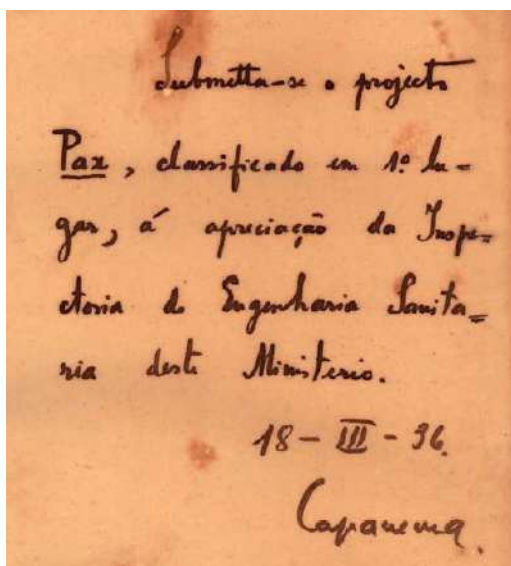 Submetta-se o projecto
Pax, classificado em 1º lu-
gar, á apreciação da Inspe-
ctoria de Engenharia Sanita-
ria deste Ministerio.
18 - III - 36.
Capanema.